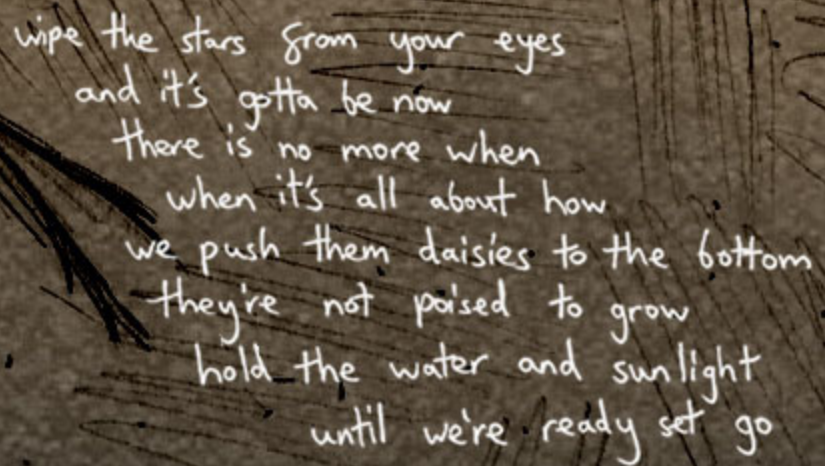 wipe the stars from your eyes
and it's gotta be now
there is no more when
when it's all about how
we push them daisies to the bottom
they're not poised to grow
hold the water and sunlight
until we're ready set go